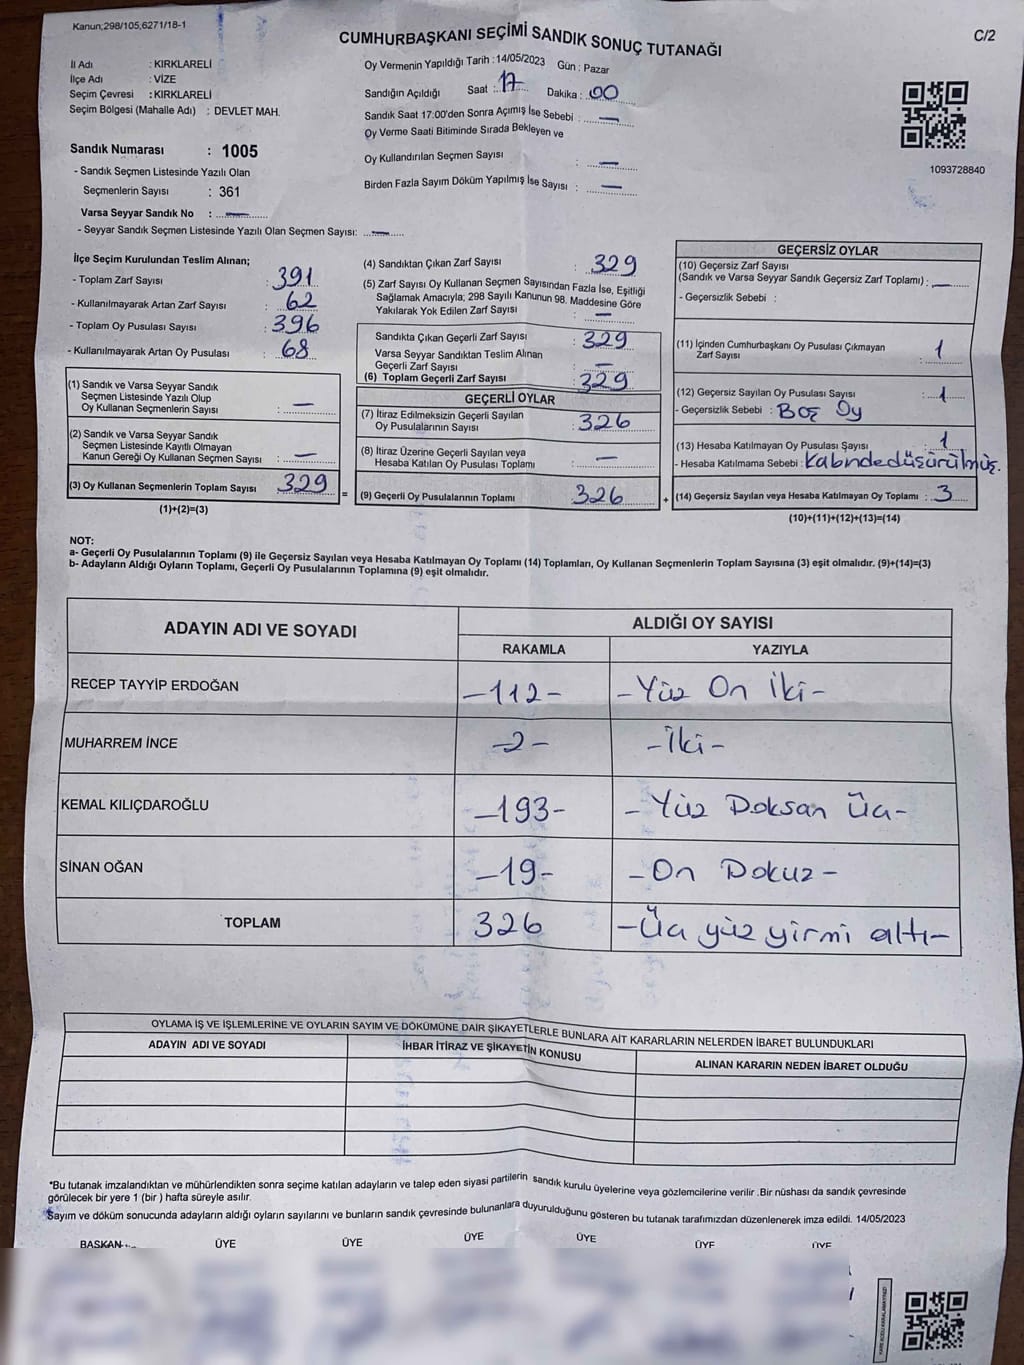 Kanun;298/105,6271/18-1
CUMHURBAŞKANI SEÇİMİ SANDIK SONUÇ TUTANAĞI
C/2
İl Adı : KIRKLARELİ
İlçe Adı : VİZE
Seçim Çevresi : KIRKLARELİ
Seçim Bölgesi (Mahalle Adı) : DEVLET MAH.
Sandık Numarası : 1005
- Sandık Seçmen Listesinde Yazılı Olan
Seçmenlerin Sayısı : 361
Varsa Seyyar Sandık No : —
- Seyyar Sandık Seçmen Listesinde Yazılı Olan Seçmen Sayısı: —
Oy Vermenin Yapıldığı Tarih : 14/05/2023 Gün : Pazar
Sandığın Açıldığı Saat : 17 Dakika : 00
Sandık Saat 17:00'den Sonra Açımış İse Sebebi : —
Oy Verme Saati Bitiminde Sırada Bekleyen ve
Oy Kullandırılan Seçmen Sayısı : —
Birden Fazla Sayım Döküm Yapılmış İse Sayısı : —
1093728840
İlçe Seçim Kurulundan Teslim Alınan;
- Toplam Zarf Sayısı : 391
- Kullanılmayarak Artan Zarf Sayısı : 62
- Toplam Oy Pusulası Sayısı : 396
- Kullanılmayarak Artan Oy Pusulası : 68
(1) Sandık ve Varsa Seyyar Sandık
Seçmen Listesinde Yazılı Olup
Oy Kullanan Seçmenlerin Sayısı : —
(2) Sandık ve Varsa Seyyar Sandık
Seçmen Listesinde Kayıtlı Olmayan
Kanun Gereği Oy Kullanan Seçmen Sayısı : —
(3) Oy Kullanan Seçmenlerin Toplam Sayısı 329 =
(1)+(2)=(3)
(4) Sandıktan Çıkan Zarf Sayısı : 329
(5) Zarf Sayısı Oy Kullanan Seçmen Sayısından Fazla İse, Eşitliği
Sağlamak Amacıyla; 298 Sayılı Kanunun 98. Maddesine Göre
Yakılarak Yok Edilen Zarf Sayısı : —
Sandıkta Çıkan Geçerli Zarf Sayısı : 329
Varsa Seyyar Sandıktan Teslim Alınan
Geçerli Zarf Sayısı : —
(6) Toplam Geçerli Zarf Sayısı : 329
GEÇERLİ OYLAR
(7) İtiraz Edilmeksizin Geçerli Sayılan
Oy Pusulalarının Sayısı : 326
(8) İtiraz Üzerine Geçerli Sayılan veya
Hesaba Katılan Oy Pusulası Toplamı : —
(9) Geçerli Oy Pusulalarının Toplamı 326 +
GEÇERSİZ OYLAR
(10) Geçersiz Zarf Sayısı
(Sandık ve Varsa Seyyar Sandık Geçersiz Zarf Toplamı) : —
- Geçersizlik Sebebi :
(11) İçinden Cumhurbaşkanı Oy Pusulası Çıkmayan
Zarf Sayısı : 1
(12) Geçersiz Sayılan Oy Pusulası Sayısı : 1
- Geçersizlik Sebebi : Boş Oy
(13) Hesaba Katılmayan Oy Pusulası Sayısı : 1
- Hesaba Katılmama Sebebi : Kabinde düşürülmüş.
(14) Geçersiz Sayılan veya Hesaba Katılmayan Oy Toplamı : 3
(10)+(11)+(12)+(13)=(14)
NOT:
a- Geçerli Oy Pusulalarının Toplamı (9) ile Geçersiz Sayılan veya Hesaba Katılmayan Oy Toplamı (14) Toplamları, Oy Kullanan Seçmenlerin Toplam Sayısına (3) eşit olmalıdır. (9)+(14)=(3)
b- Adayların Aldığı Oyların Toplamı, Geçerli Oy Pusulalarının Toplamına (9) eşit olmalıdır.
ADAYIN ADI VE SOYADI ALDIĞI OY SAYISI
RAKAMLA YAZIYLA
RECEP TAYYİP ERDOĞAN -112- -Yüz On İki-
MUHARREM İNCE -2- -İki-
KEMAL KILIÇDAROĞLU -193- -Yüz Doksan Üç-
SİNAN OĞAN -19- -On Dokuz-
TOPLAM 326 -Üç yüz yirmi altı-
OYLAMA İŞ VE İŞLEMLERİNE VE OYLARIN SAYIM VE DÖKÜMÜNE DAİR ŞİKAYETLERLE BUNLARA AİT KARARLARIN NELERDEN İBARET BULUNDUKLARI
ADAYIN ADI VE SOYADI İHBAR İTİRAZ VE ŞİKAYETİN KONUSU ALINAN KARARIN NEDEN İBARET OLDUĞU
*Bu tutanak imzalandıktan ve mühürlendikten sonra seçime katılan adayların ve talep eden siyasi partilerin sandık kurulu üyelerine veya gözlemcilerine verilir .Bir nüshası da sandık çevresinde
görülecek bir yere 1 (bir ) hafta süreyle asılır.
Sayım ve döküm sonucunda adayların aldığı oyların sayılarını ve bunların sandık çevresinde bulunanlara duyurulduğunu gösteren bu tutanak tarafımızdan düzenlenerek imza edildi. 14/05/2023
BAŞKAN ÜYE ÜYE ÜYE ÜYE ÜYE ÜYE